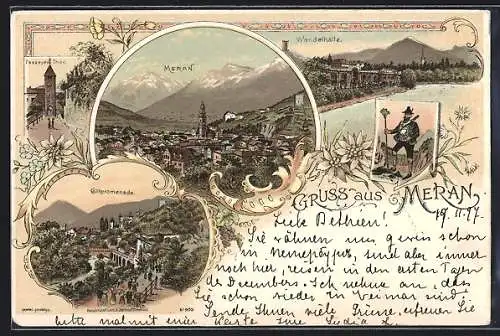 Passeyrer Thor.
MERAN
Wandelhalle.
Gilfpromenade.
GRUSS aus MERAN.
19. 11. 97.
Liebe Bethien!
Sie wähnen uns gewiss schon
in und sind aber immer
noch hier, reisen in den ersten Tagen
des Decembers. Ich nehme an, dass
Sie schon wieder in Weimar sind
Sende Ihnen viele Grüsse, erfreuen Sie
bitte mal mit einer Karte Ihre